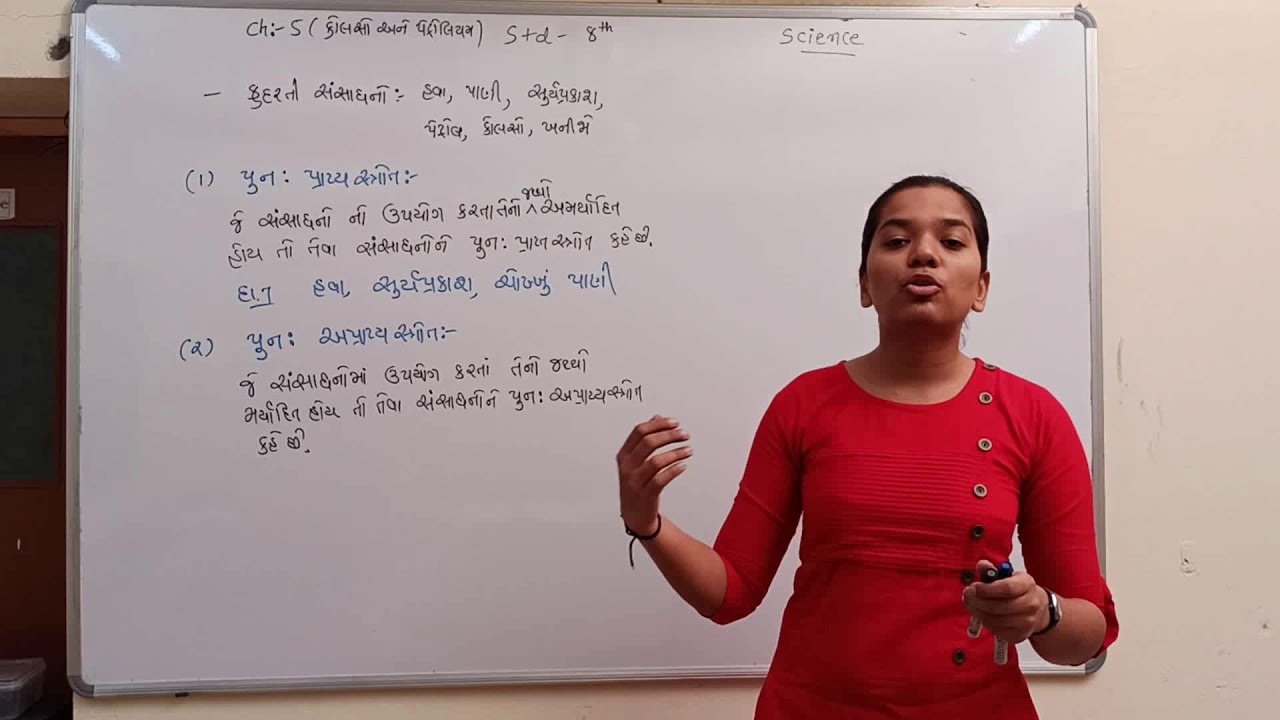 Ch:- 5 ( કોલસો અને પેટ્રોલિયમ) Std - 8th
Science
- કુદરતી સંસાધનો :- હવા, પાણી, સુર્યપ્રકાશ,
પેટ્રોલ, કોલસો, ખનીજો
(1) પુન: પ્રાપ્ય સ્ત્રોત:-
જે સંસાધનો નો ઉપયોગ કરતા તેનો જથ્થો અમર્યાદિત
હોય તો તેવા સંસાધનોને પુન: પ્રાપ્ય સ્ત્રોત કહે છે.
દા.ત હવા, સુર્યપ્રકાશ, ચોખ્ખું પાણી
(૨) પુન: અપ્રાપ્ય સ્ત્રોત:-
જે સંસાધનોમાં ઉપયોગ કરતાં તેનો જથ્થો
મર્યાદિત હોય તો તેવા સંસાધનોને પુન: અપ્રાપ્યસ્ત્રોત
કહે છે.